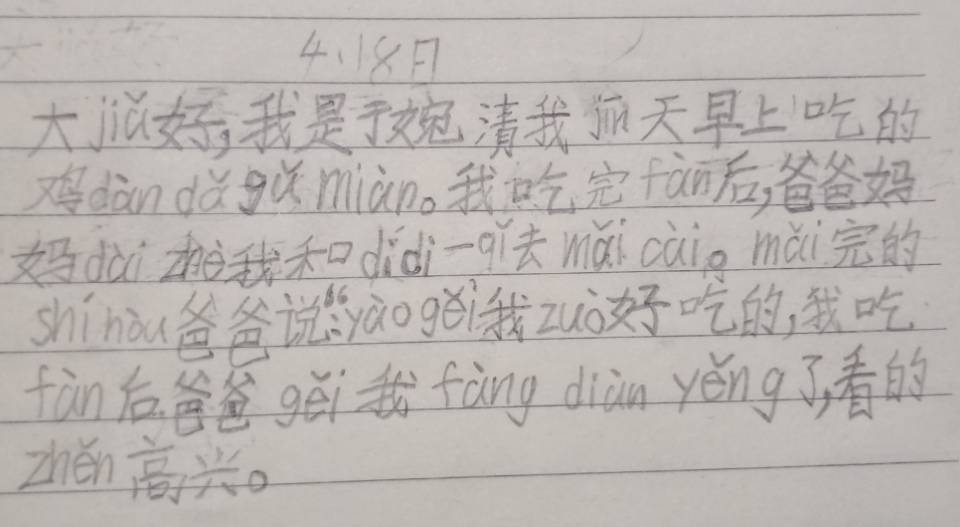 4.18日
大jiǎ好,我是于婉清我 天早上吃的
鸡dàn dǎ gǔ miàn。我吃完fàn后,爸爸妈
妈dài zhè我和dìdi一qǐ去mǎi cài。mǎi完的
shí hòu爸爸说:“yào gěi我zuò好吃的,我吃
fàn后爸爸gěi我fàng diàn yěng了,看的
zhěn高兴。